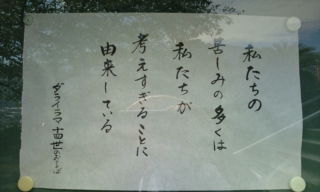 私たちの
苦しみの多くは
私たちが
考えすぎることに
由来している
ダライラマ十四世のおことば